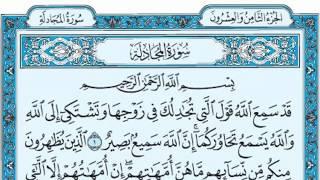 الجزء الثامن والعشرون
سورة المجادلة
سورة المجادلة
بسم الله الرحمن الرحيم
قَدْ سَمِعَ اللَّهُ قَوْلَ الَّتِي تُجَادِلُكَ فِي زَوْجِهَا وَتَشْتَكِي إِلَى اللَّهِ
وَاللَّهُ يَسْمَعُ تَحَاوُرَكُمَا إِنَّ اللَّهَ سَمِيعٌ بَصِيرٌ ١ الَّذِينَ يُظَاهِرُونَ
مِنكُم مِّن نِّسَائِهِم مَّا هُنَّ أُمَّهَاتِهِمْ إِنْ أُمَّهَاتُهُمْ إِلَّا اللَّائِي